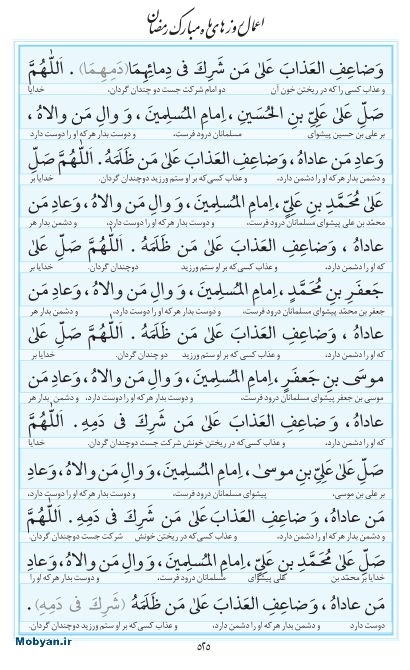 اعمال روزهای ماه مبارک رمضان
وَضاعِفِ العَذابَ عَلیٰ مَن شَرِكَ فی دِمائِهِما (دَمِهِما) . اَللّٰهُمَّ
و عذاب کسی را که در ریختن خون آن دو امام شرکت جست دو چندان گردان، خدایا
صَلِّ عَلیٰ عَلِیِّ بنِ الحُسَینِ ، اِمامِ المُسلِمینَ ، وَ والِ مَن والاهُ ،
بر علی بن حسین پیشوای مسلمانان درود فرست، و دوست بدار هر که او را دوست دارد
وَعادِ مَن عاداهُ ، وَضاعِفِ العَذابَ عَلیٰ مَن ظَلَمَهُ . اَللّٰهُمَّ صَلِّ
و دشمن بدار هر که او را دشمن دارد، و عذاب کسی که بر او ستم ورزید دوچندان گردان. خدایا بر
عَلیٰ مُحَمَّدِ بنِ عَلِیٍّ ، اِمامِ المُسلِمینَ ، وَ والِ مَن والاهُ ، وَعادِ مَن
محمّد بن علی پیشوای مسلمانان درود فرست، و دوست بدار هر که او را دوست دارد، و دشمن بدار هر
عاداهُ ، وَ ضاعِفِ العَذابَ عَلیٰ مَن ظَلَمَهُ . اَللّٰهُمَّ صَلِّ عَلیٰ
که او را دشمن دارد، و عذاب کسی که بر او ستم ورزید دوچندان گردان. خدایا بر
جَعفَرِ بنِ مُحَمَّدٍ ، اِمامِ المُسلِمینَ، وَ والِ مَن والاهُ ، وَعادِ مَن
جعفر بن محمّد پیشوای مسلمانان درود فرست، و دوست بدار هر که او را دوست دارد، و دشمن بدار هر
عاداهُ ، وَ ضاعِفِ العَذابَ عَلیٰ مَن ظَلَمَهُ . اَللّٰهُمَّ صَلِّ عَلیٰ
که او را دشمن دارد، و عذاب کسی که بر او ستم ورزید دو چندان گردان. خدایا بر
موسَی بنِ جَعفَرٍ ، اِمامِ المُسلِمینَ ، وَ والِ مَن والاهُ ، وَعادِ مَن
موسی بن جعفر پیشوای مسلمانان درود فرست، و دوست بدار هر که او را دوست دارد، و دشمن بدار هر
عاداهُ ، وَ ضاعِفِ العَذابَ عَلیٰ مَن شَرِكَ فی دَمِهِ . اَللّٰهُمَّ
که او را دشمن دارد، و عذاب کسی که در ریختن خونش شرکت جست دوچندان گردان. خدایا
صَلِّ عَلیٰ عَلِیِّ بنِ موسیٰ، اِمامِ المُسلِمینَ، وَ والِ مَن والاهُ، وَعادِ
بر علی بن موسی، پیشوای مسلمانان درود فرست، و دوست بدار هر که او را دوست دارد،
مَن عاداهُ ، وَ ضاعِفِ العَذابَ عَلیٰ مَن شَرِكَ فی دَمِهِ . اَللّٰهُمَّ
و دشمن بدار هر که او را دشمن دارد، و عذاب کسی که در ریختن خونش شرکت جست دوچندان گردان.
صَلِّ عَلیٰ مُحَمَّدِ بنِ عَلِیٍّ ، اِمامِ المُسلِمینَ ، وَ والِ مَن والاهُ، وَعادِ
خدایا بر محمّد بن علی پیشوای مسلمانان درود فرست، و دوست بدار هر که او را
مَن عاداهُ ، وَ ضاعِفِ العَذابَ عَلیٰ مَن ظَلَمَهُ (شَرِكَ فی دَمِهِ) .
دوست دارد، و دشمن بدار هر که او را دشمن دارد، و عذاب کسی که بر او ستم ورزید دوچندان گردان.
۵۲۵
Mobyan.ir